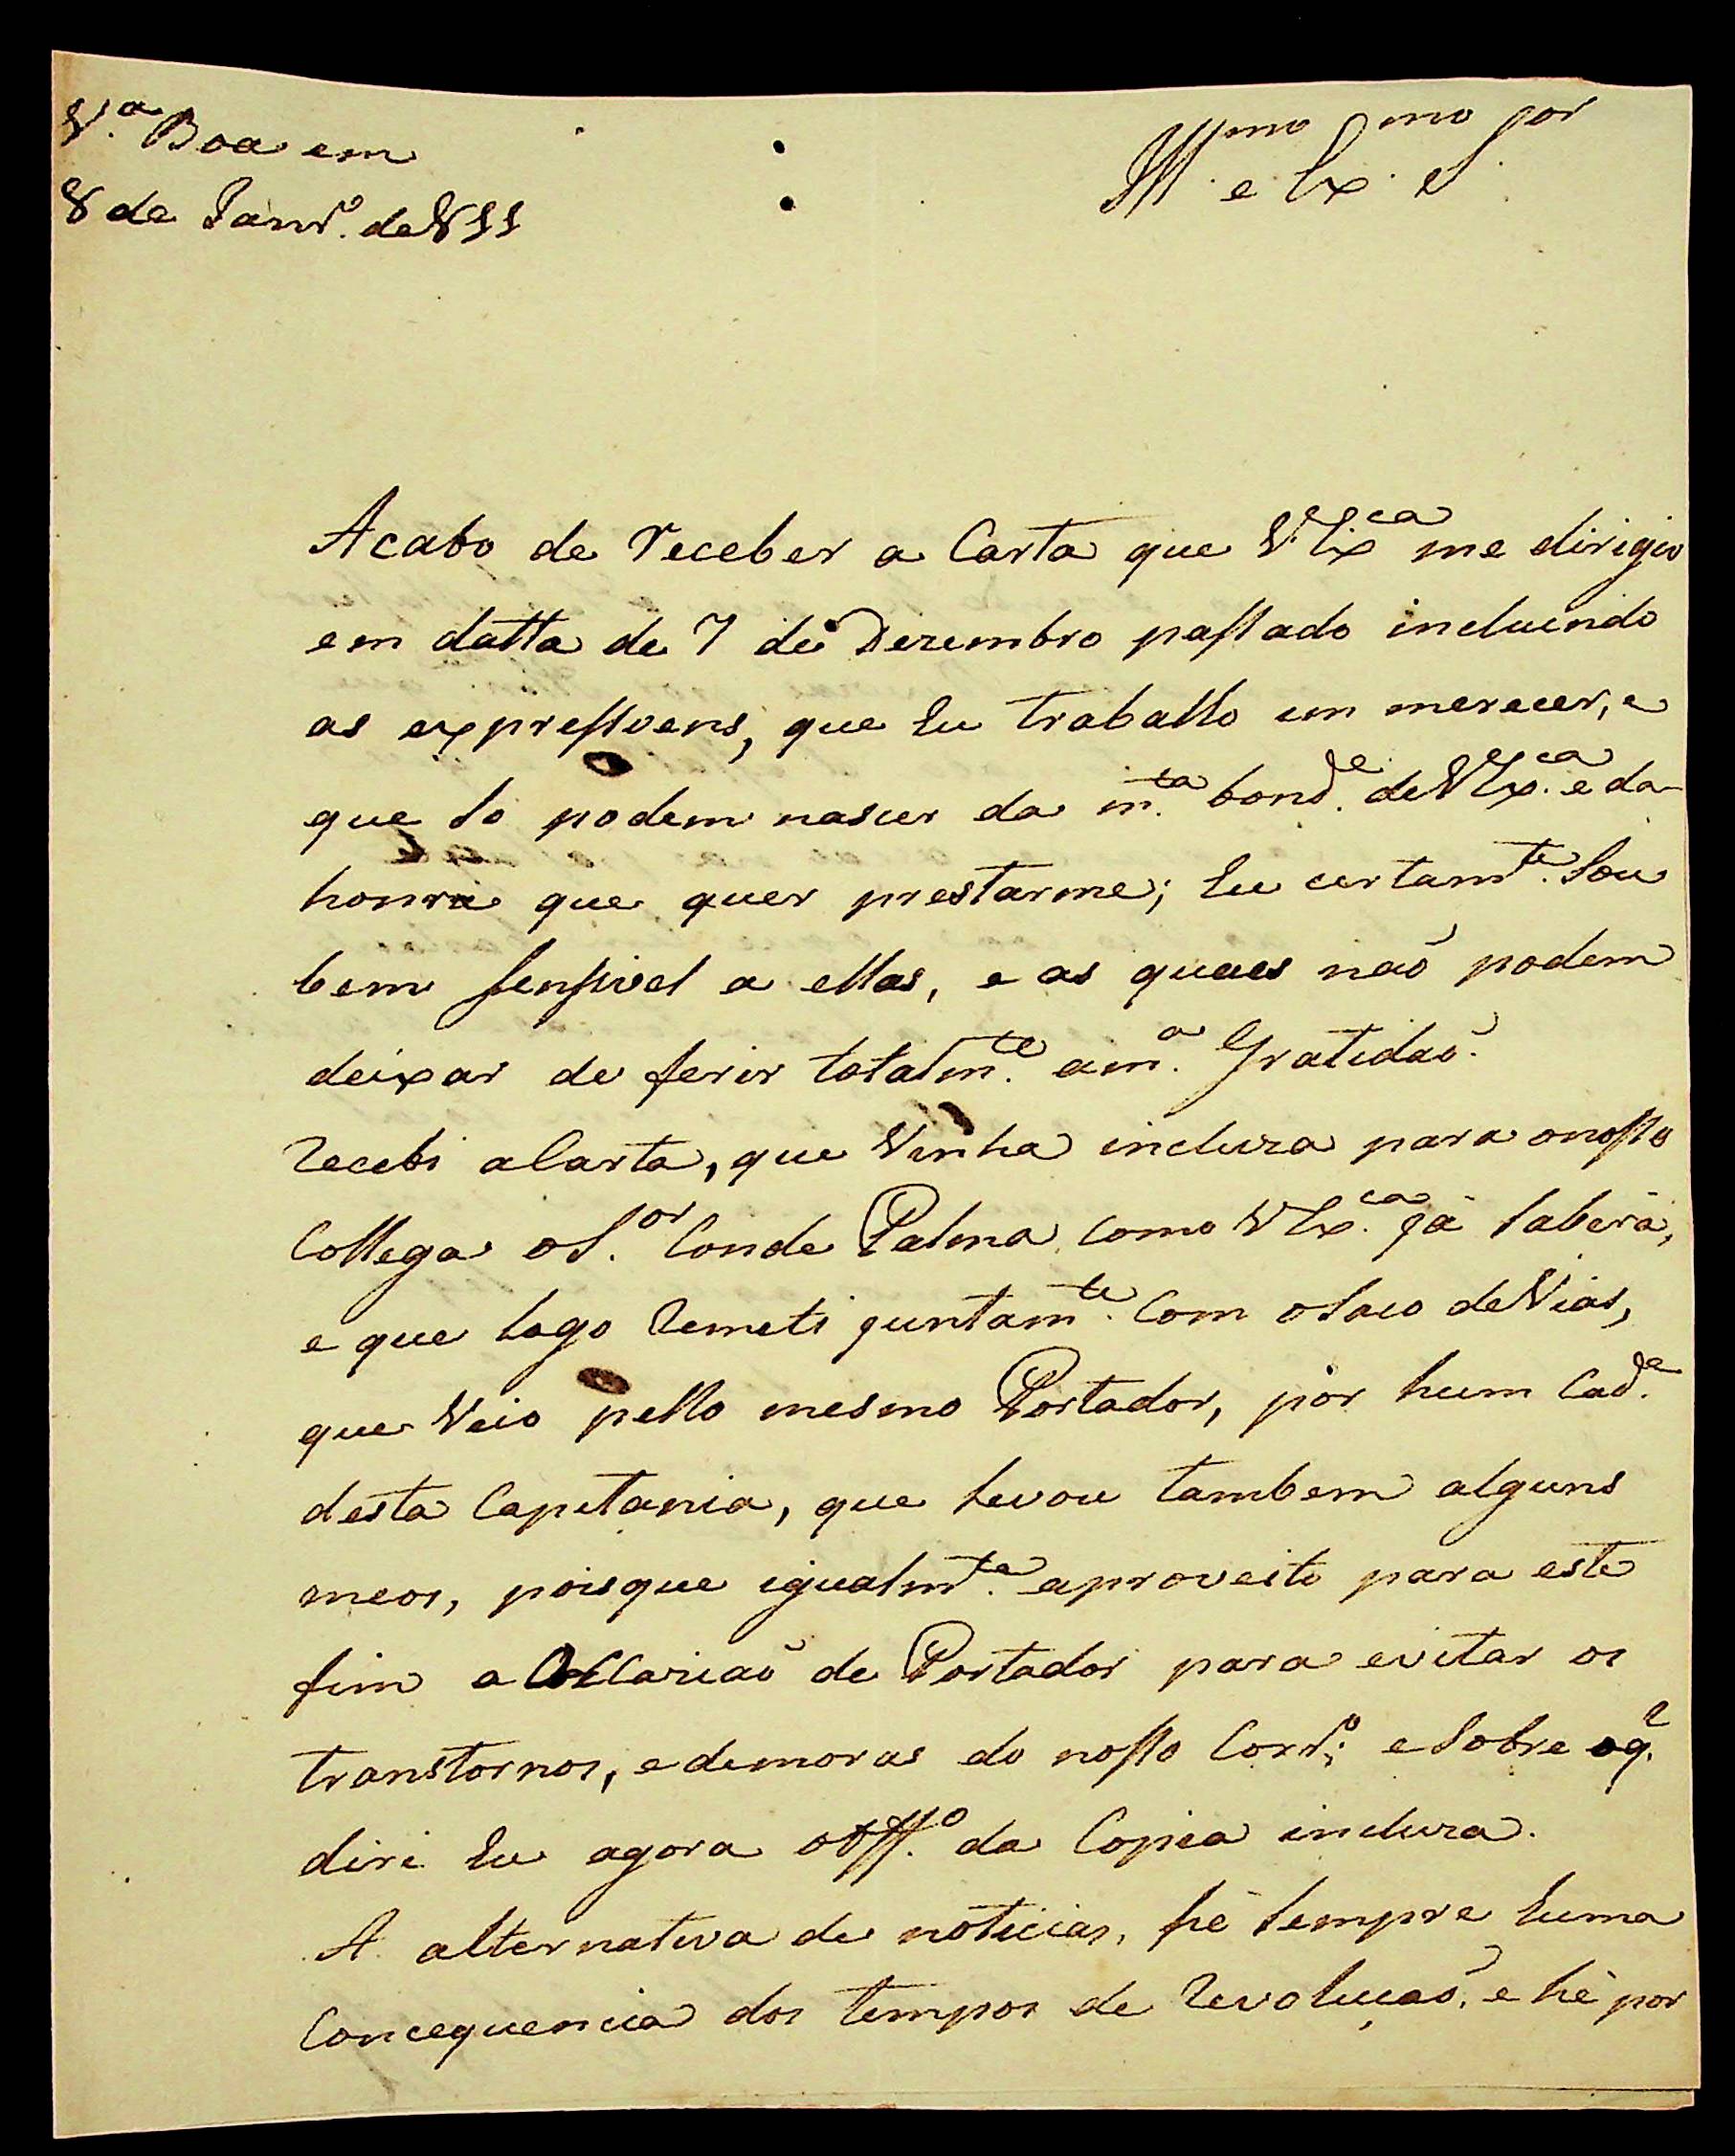 V.ª Boa em
8 de Janr.º de 811
Ill.mo e Ex.mo S.or
Acabo de receber a Carta que V Ex.ca me dirigio
em datta de 7 de Dezembro passado incluindo
as expressoens, que Eu trabalho em merecer, e
que so podem nascer da m.ta bond.e de V Ex.ca e da
honra que quer prestarme; Eu certam.te Sou
bem sensivel a ellas, e as quaes naõ podem
deixar de ferir totalm.te a m.ª Gratidaõ.
Recebi a Carta, que Vinha incluza para o nosso
Collega o S.or Conde Palma como V Ex.ca já Saberá,
e que logo Remeti juntam.te Com o Saco de Vias,
que Veio pello mesmo Portador, por hum Cad.e
desta Capitania, que levou tambem alguns
meos, pois que igualm.te aproveito para este
fim a de Portador para evitar os
transtornos, e demoras do nosso Corr.º; e Sobre o q.
diri Eu agora o Off.º da Copia incluza.
A alternativa de noticias, hé Sempre huma
Concequencia dos tempos de Revoluçaõ, e hé por